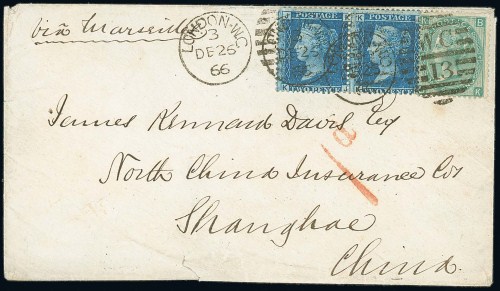 via Marseille
LONDON-W.C
3
DE 26
66
POSTAGE
POSTAGE
TWO PENCE
TWO PENCE
W.C
13
James Kennard Davis Esq
North China Insurance Coy
Shanghae
China